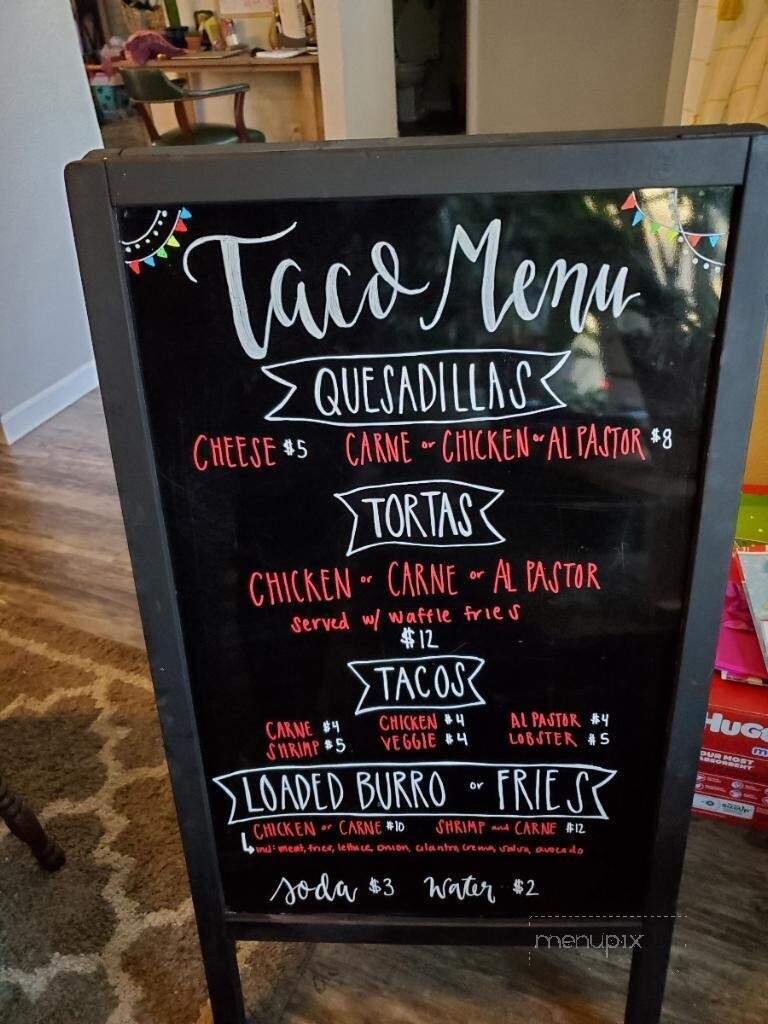 Taco Menu
QUESADILLAS
CHEESE $5 CARNE or CHICKEN or AL PASTOR $8
TORTAS
CHICKEN or CARNE or AL PASTOR
served w/ waffle fries
$12
TACOS
CARNE $4 CHICKEN $4 AL PASTOR $4
SHRIMP $5 VEGGIE $4 LOBSTER $5
LOADED BURRO or FRIES
CHICKEN or CARNE $10 SHRIMP and CARNE $12
incl: meat, fries, lettuce, onion, cilantro, crema, salsa, avocado
soda $3 water $2
HUGG
OUR MOST
ABSORBENT
menupix